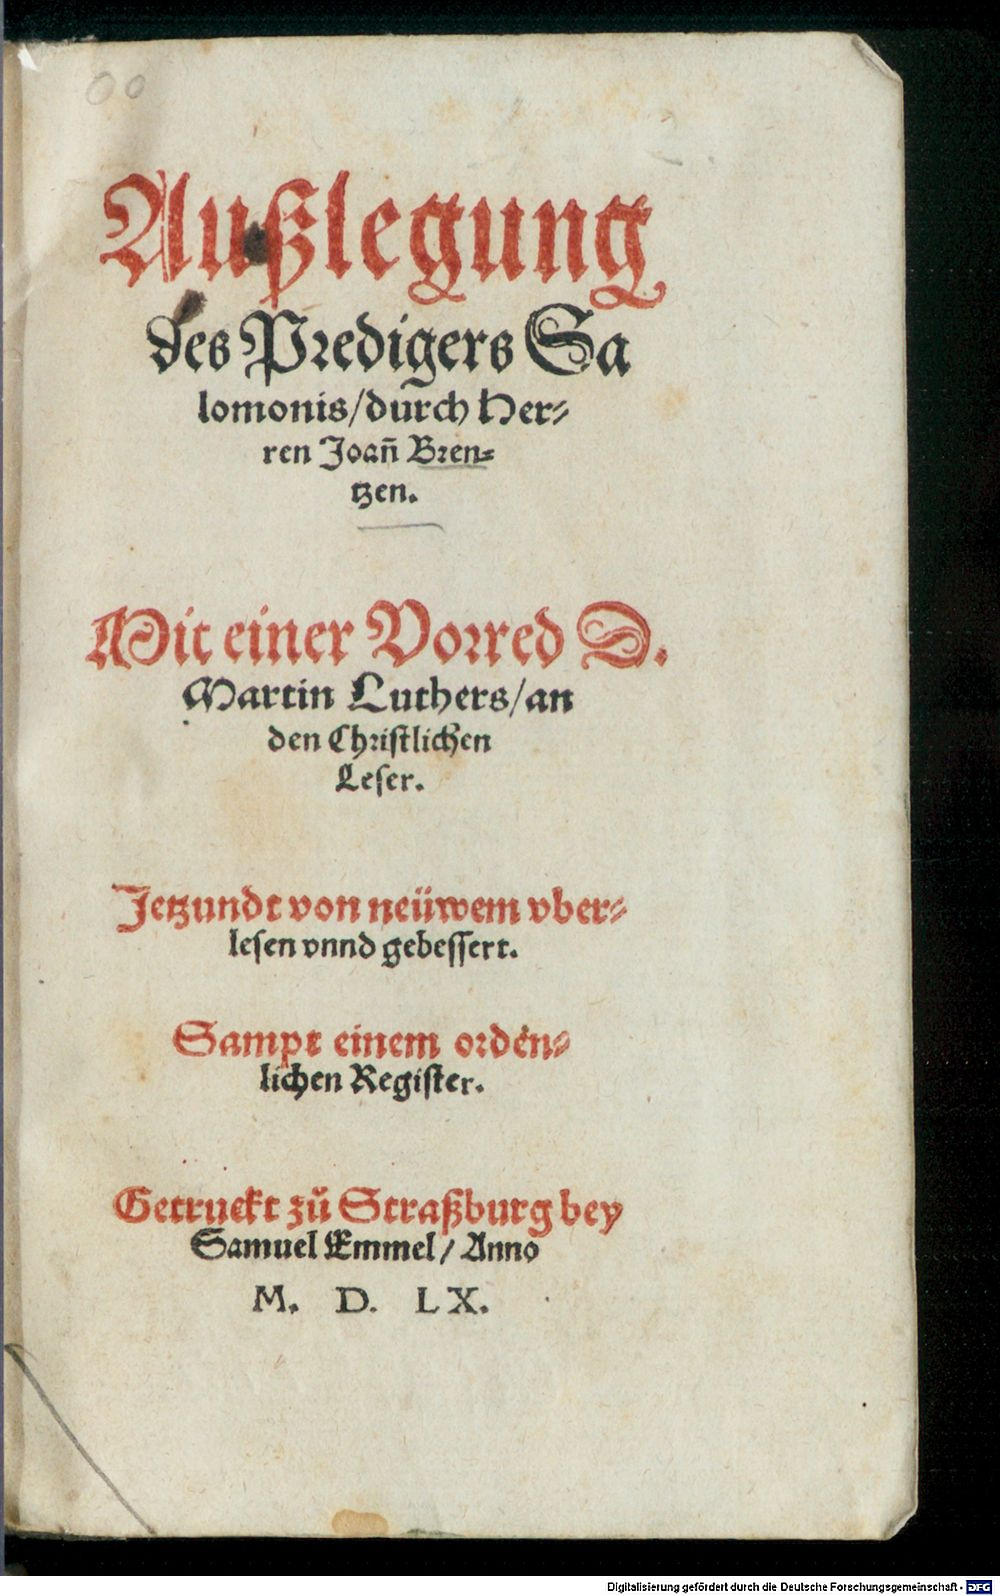 00
Außlegung
des Predigers Sa
lomonis/durch Her-
ren Joan̄ Bren-
tzen.
Mit einer Vorred D.
Martin Luthers/an
den Christlichen
Leser.
Jetzundt von neüwem vber-
lesen vnnd gebessert.
Sampt einem orden-
lichen Register.
Getruckt zů Straßburg bey
Samuel Emmel/ Anno
M. D. LX.
Digitalisierung gefördert durch die Deutsche Forschungsgemeinschaft - DFG